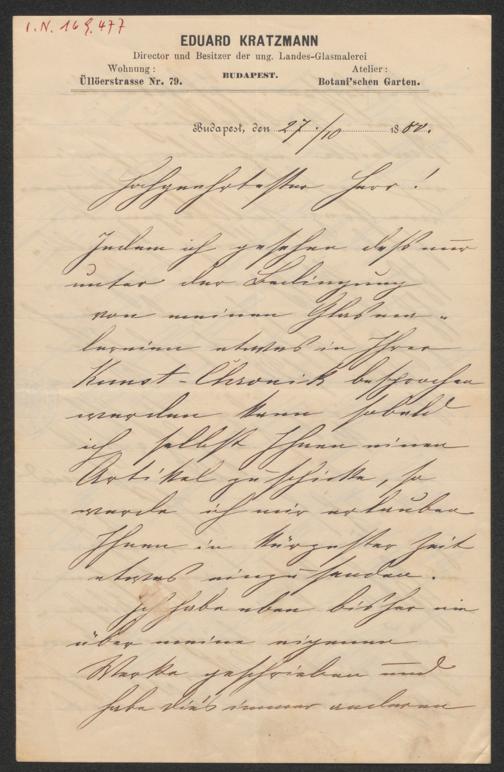 I. N. 169.477
EDUARD KRATZMANN
Director und Besitzer der ung. Landes-Glasmalerei
Wohnung: Atelier:
Üllöerstrasse Nr. 79. BUDAPEST. Botani'schen Garten.
Budapest, den 27./10 1880.
Hochgeehrtester Herr!
Indem ich gesehen daß nur
unter der Bedingung
von meinen Glasma-
lereien etwas in Ihrer
Kunst-Chronik besprochen
werden kann sobald
ich selbst Ihnen einen
Artikel zuschicke, so
werde ich mir erlauben
Ihnen in kürzester Zeit
etwas einzusenden.
Ich habe eben bisher nie
über meine eigenen
Werke geschrieben und
habe dies immer anderen